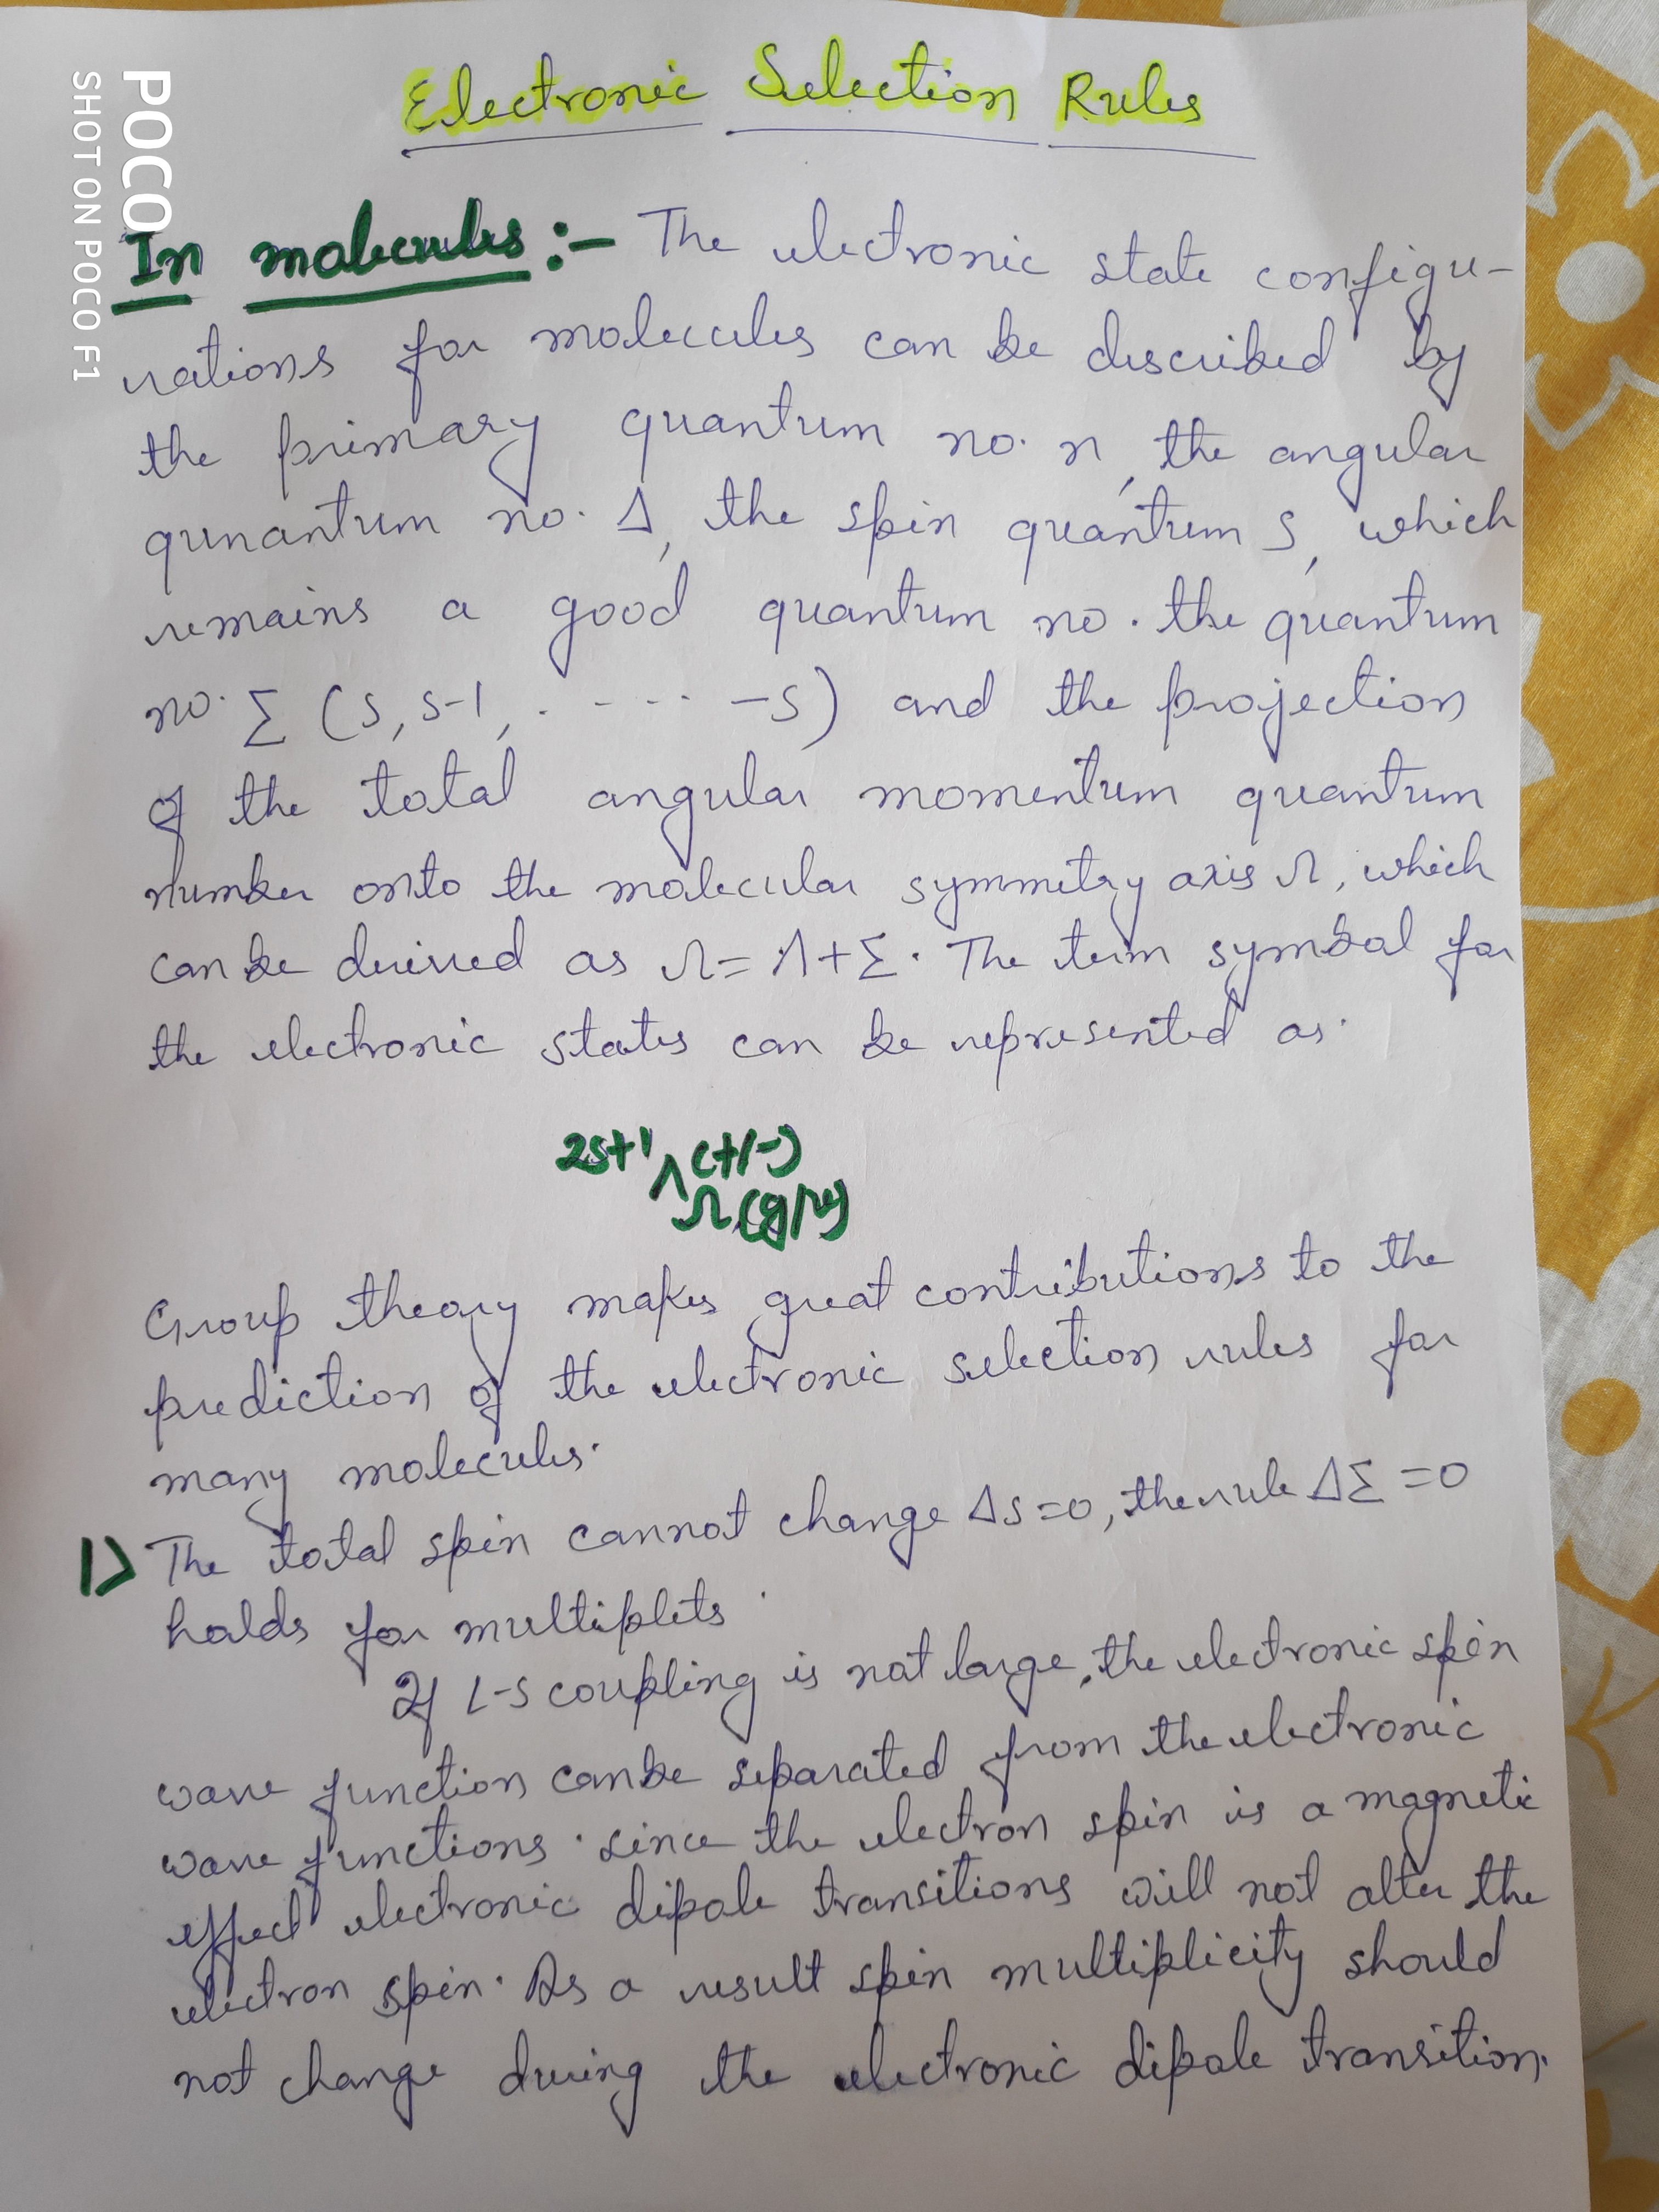 POCO
SHOT ON POCO F1
Electronic Selection Rules
In molecules :- The electronic state configu-
rations for molecules can be described by
the primary quantum no. n, the angular
qunantum no. Δ, the spin quantum S, which
remains a good quantum no. the quantum
no. Σ (S, S-1, . - - - . - S) and the projection
of the total angular momentum quantum
number onto the molecular symmetry axis Ω, which
can be derived as Ω = Λ + Σ. The term symbol for
the electronic states can be represented as.
2S+1 Λ (+/-)
Ω, (g/u)
Group theory makes great contributions to the
prediction of the electronic selection rules for
many molecules.
1> The total spin cannot change ΔS=0, the rule ΔΣ =0
holds for multiplets.
If L-S coupling is not large, the electronic spin
wave function can be separated from the electronic
wave functions. since the electron spin is a magnetic
effect electronic dipole transitions will not alter the
electron spin. As a result spin multiplicity should
not change during the electronic dipole transition.